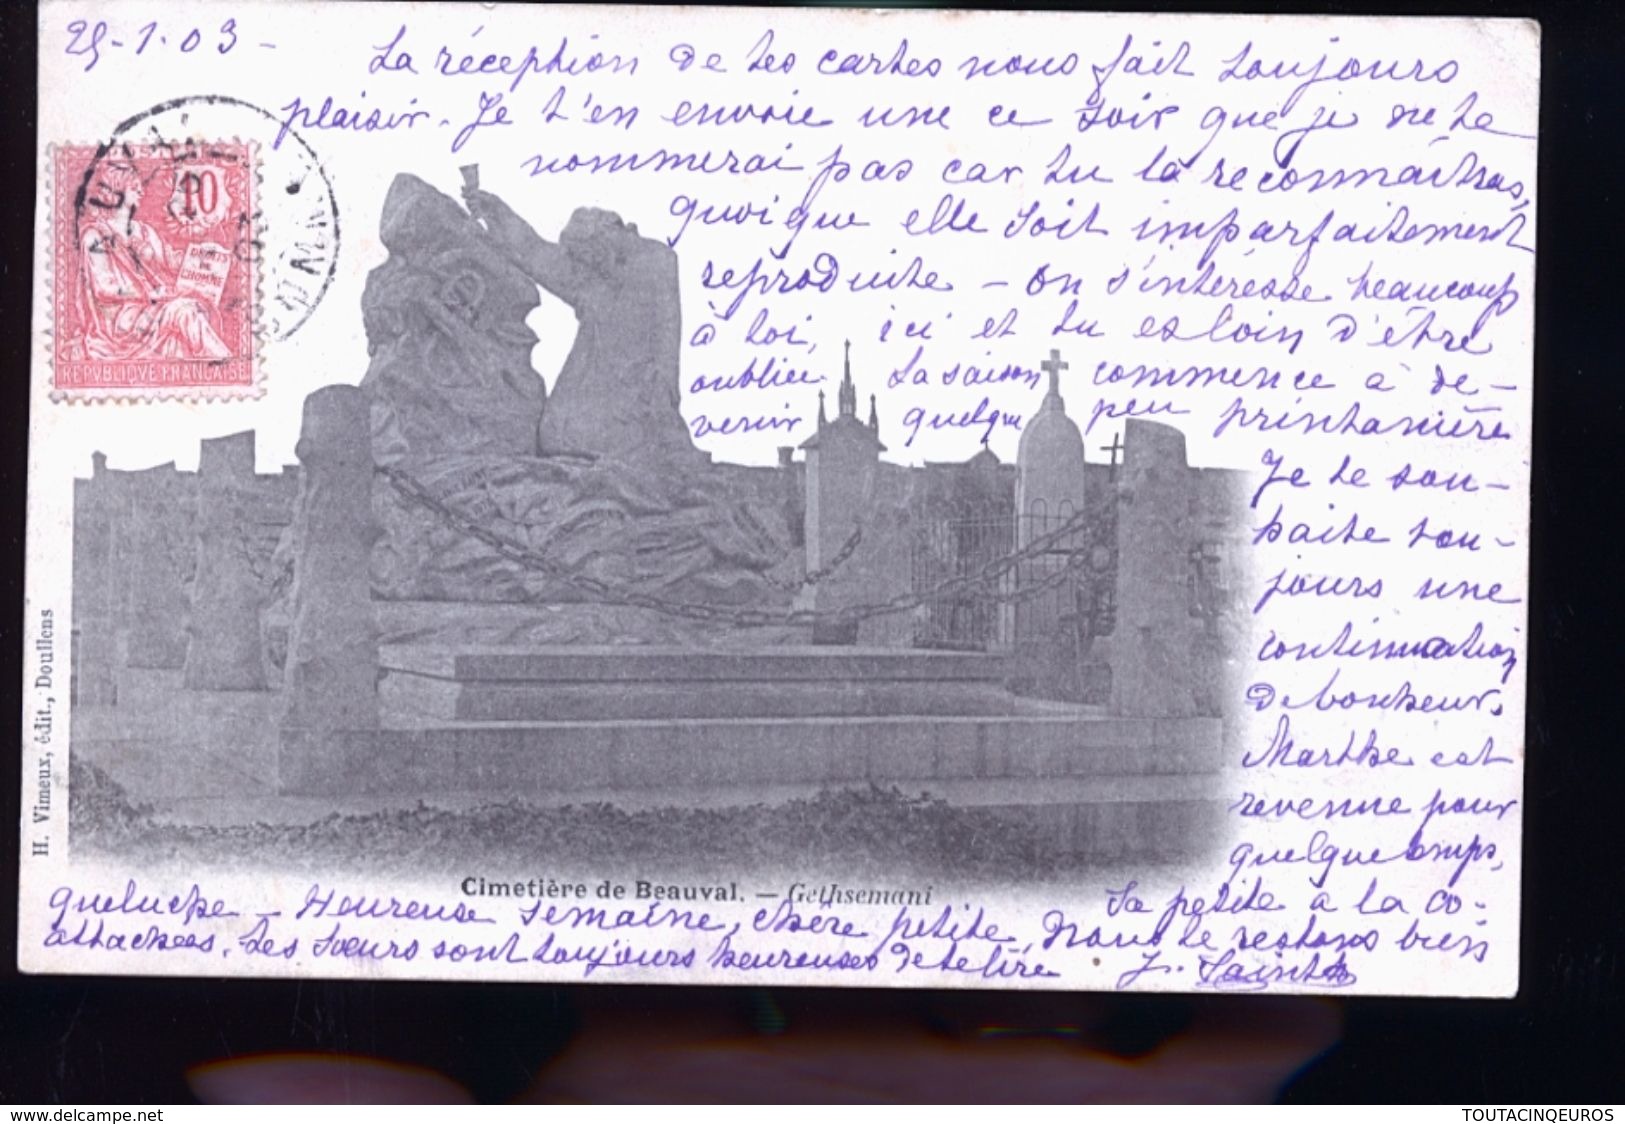 25-1-03 -
La réception de tes cartes nous fait toujours
plaisir. Je t'en envoie une ce soir que je ne te
nommerai pas car tu la reconnaîtras,
quoique elle soit imparfaitement
reproduite - On s'intéresse beaucoup
à toi, ici et tu es loin d'être
oubliée. La saison commence à de-
venir quelque peu printanière
Je te sou-
haite tou-
jours une
continuation
de bonheur.
Marthe est
revenue pour
quelque temps,
Sa petite a la co-
queluche - Heureuse semaine, chère petite, Nous te restons bien
attachées. Les soeurs sont toujours heureuses de te lire J. Saint
10
DROITS
DE
L'HOMME
REPVBLIQVE FRANCAISE
H. Vimeux, édit., Doullens
Cimetière de Beauval. — Gethsemani
delcampe.net
TOUTACINQEUROS